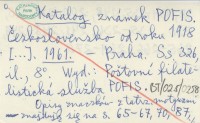 Katalog známek POFIS.
Československo od roku 1918
[...]. 1961. — Praha. Ss 326,
il., 8°. Wyd.: Poštovní filate-
listická služba POFIS.
Opisy znaczków z Tatr. motywem
znajdują się na s. 65-67, 70, 87,